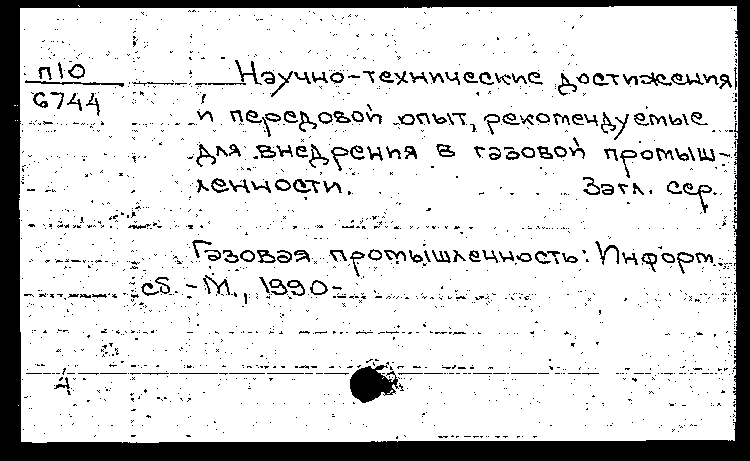 п10
6744
Научно-технические достижения
и передовой опыт, рекомендуемые
для внедрения в газовой промыш-
ленности. Загл. сер.
Газовая промышленность: Информ.
сб. - М., 1990-
А